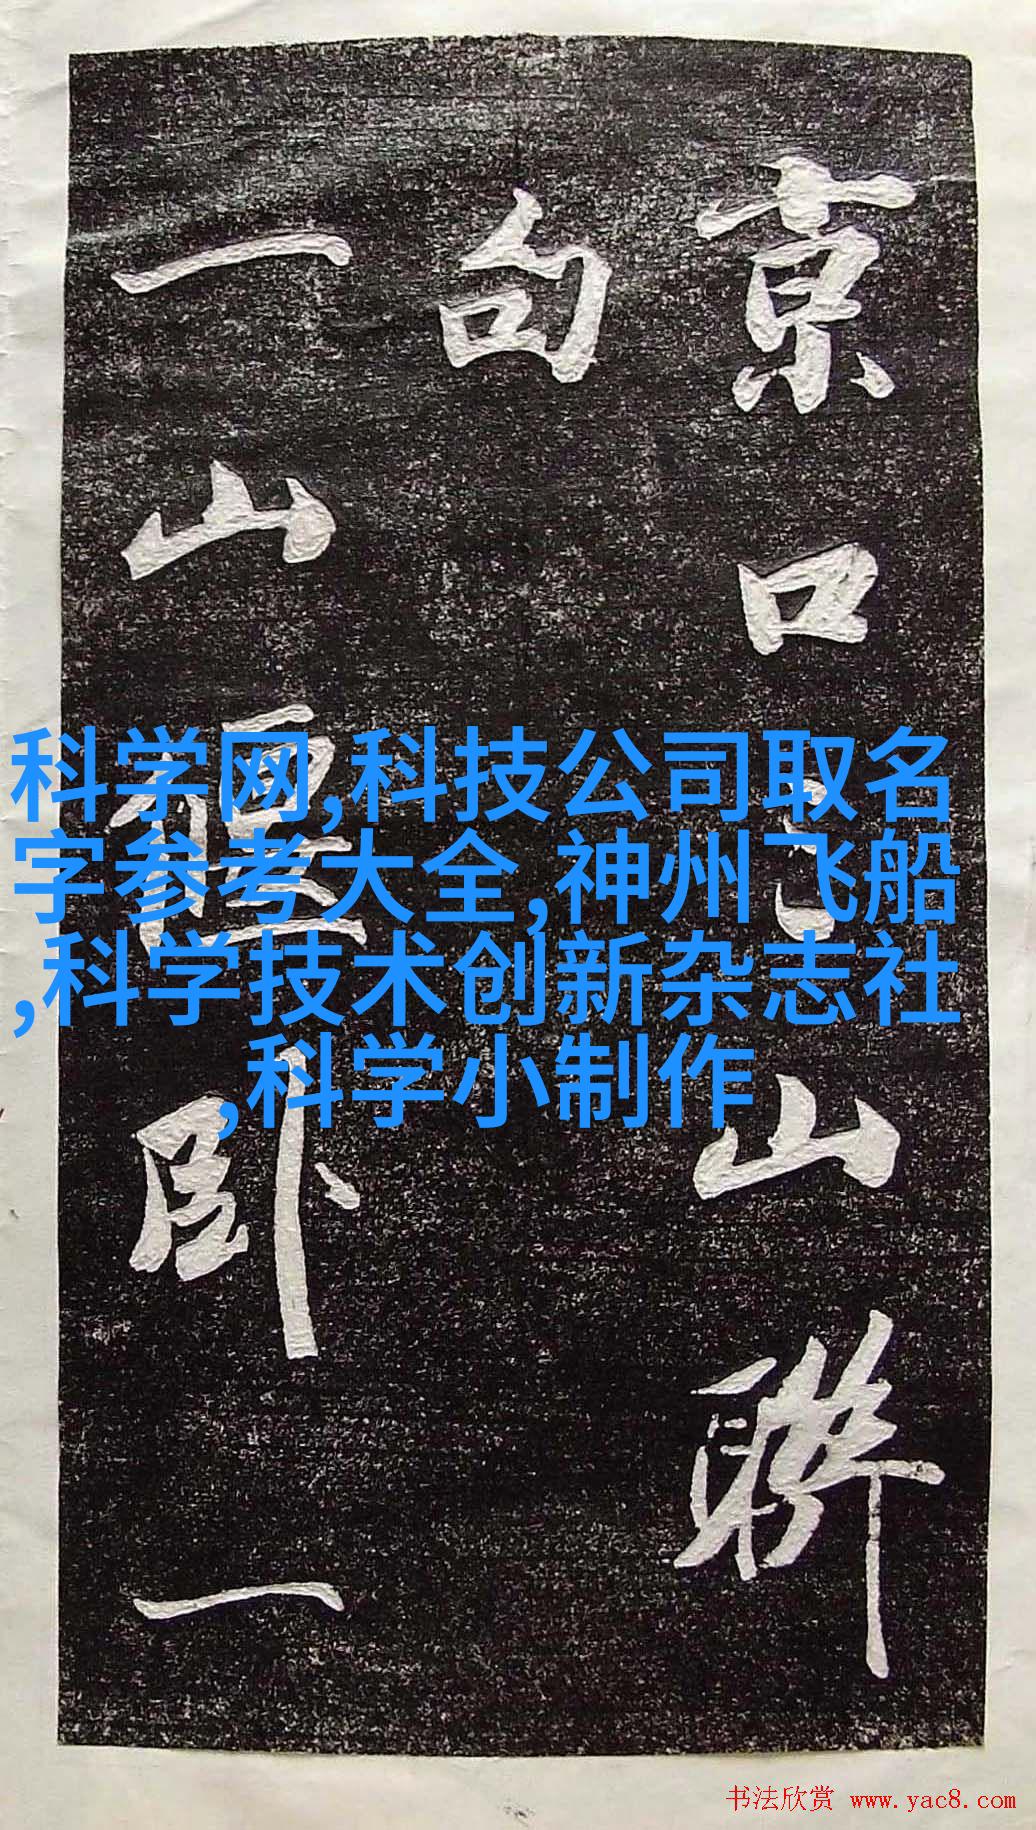 京口山聯
句
一山偃卧一
科学网,科技公司取名
字参考大全,神州飞船
,科学技术创新杂志社
,科学小制作
书法欣赏 www.yac8.com